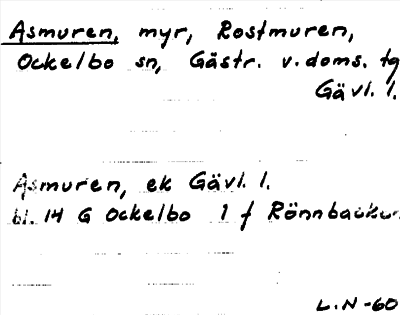 Asmuren, myr, Rostmuren,
Ockelbo sn, Gästr. v. doms. tg
Gävl. l.
Asmuren, ek Gävl. l.
bl. 14 G Ockelbo 1 f Rönnbacken
L.N -60